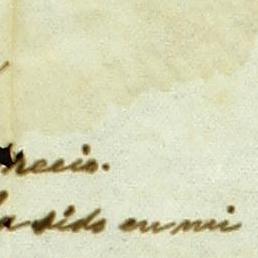 recio.
ha sido en mi